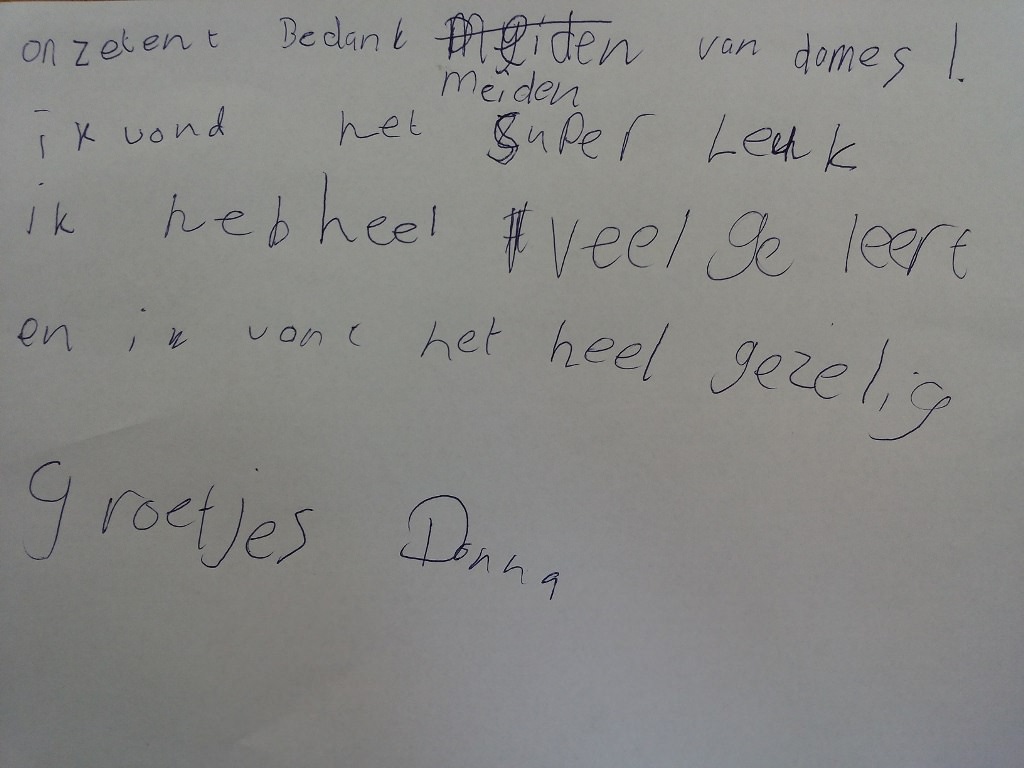 onzetent Bedankt Meiden van dames!
Meiden
ik vond het super Leuk
ik heb heel veel ge leert
en ik vont het heel gezelig
Groetjes Donna